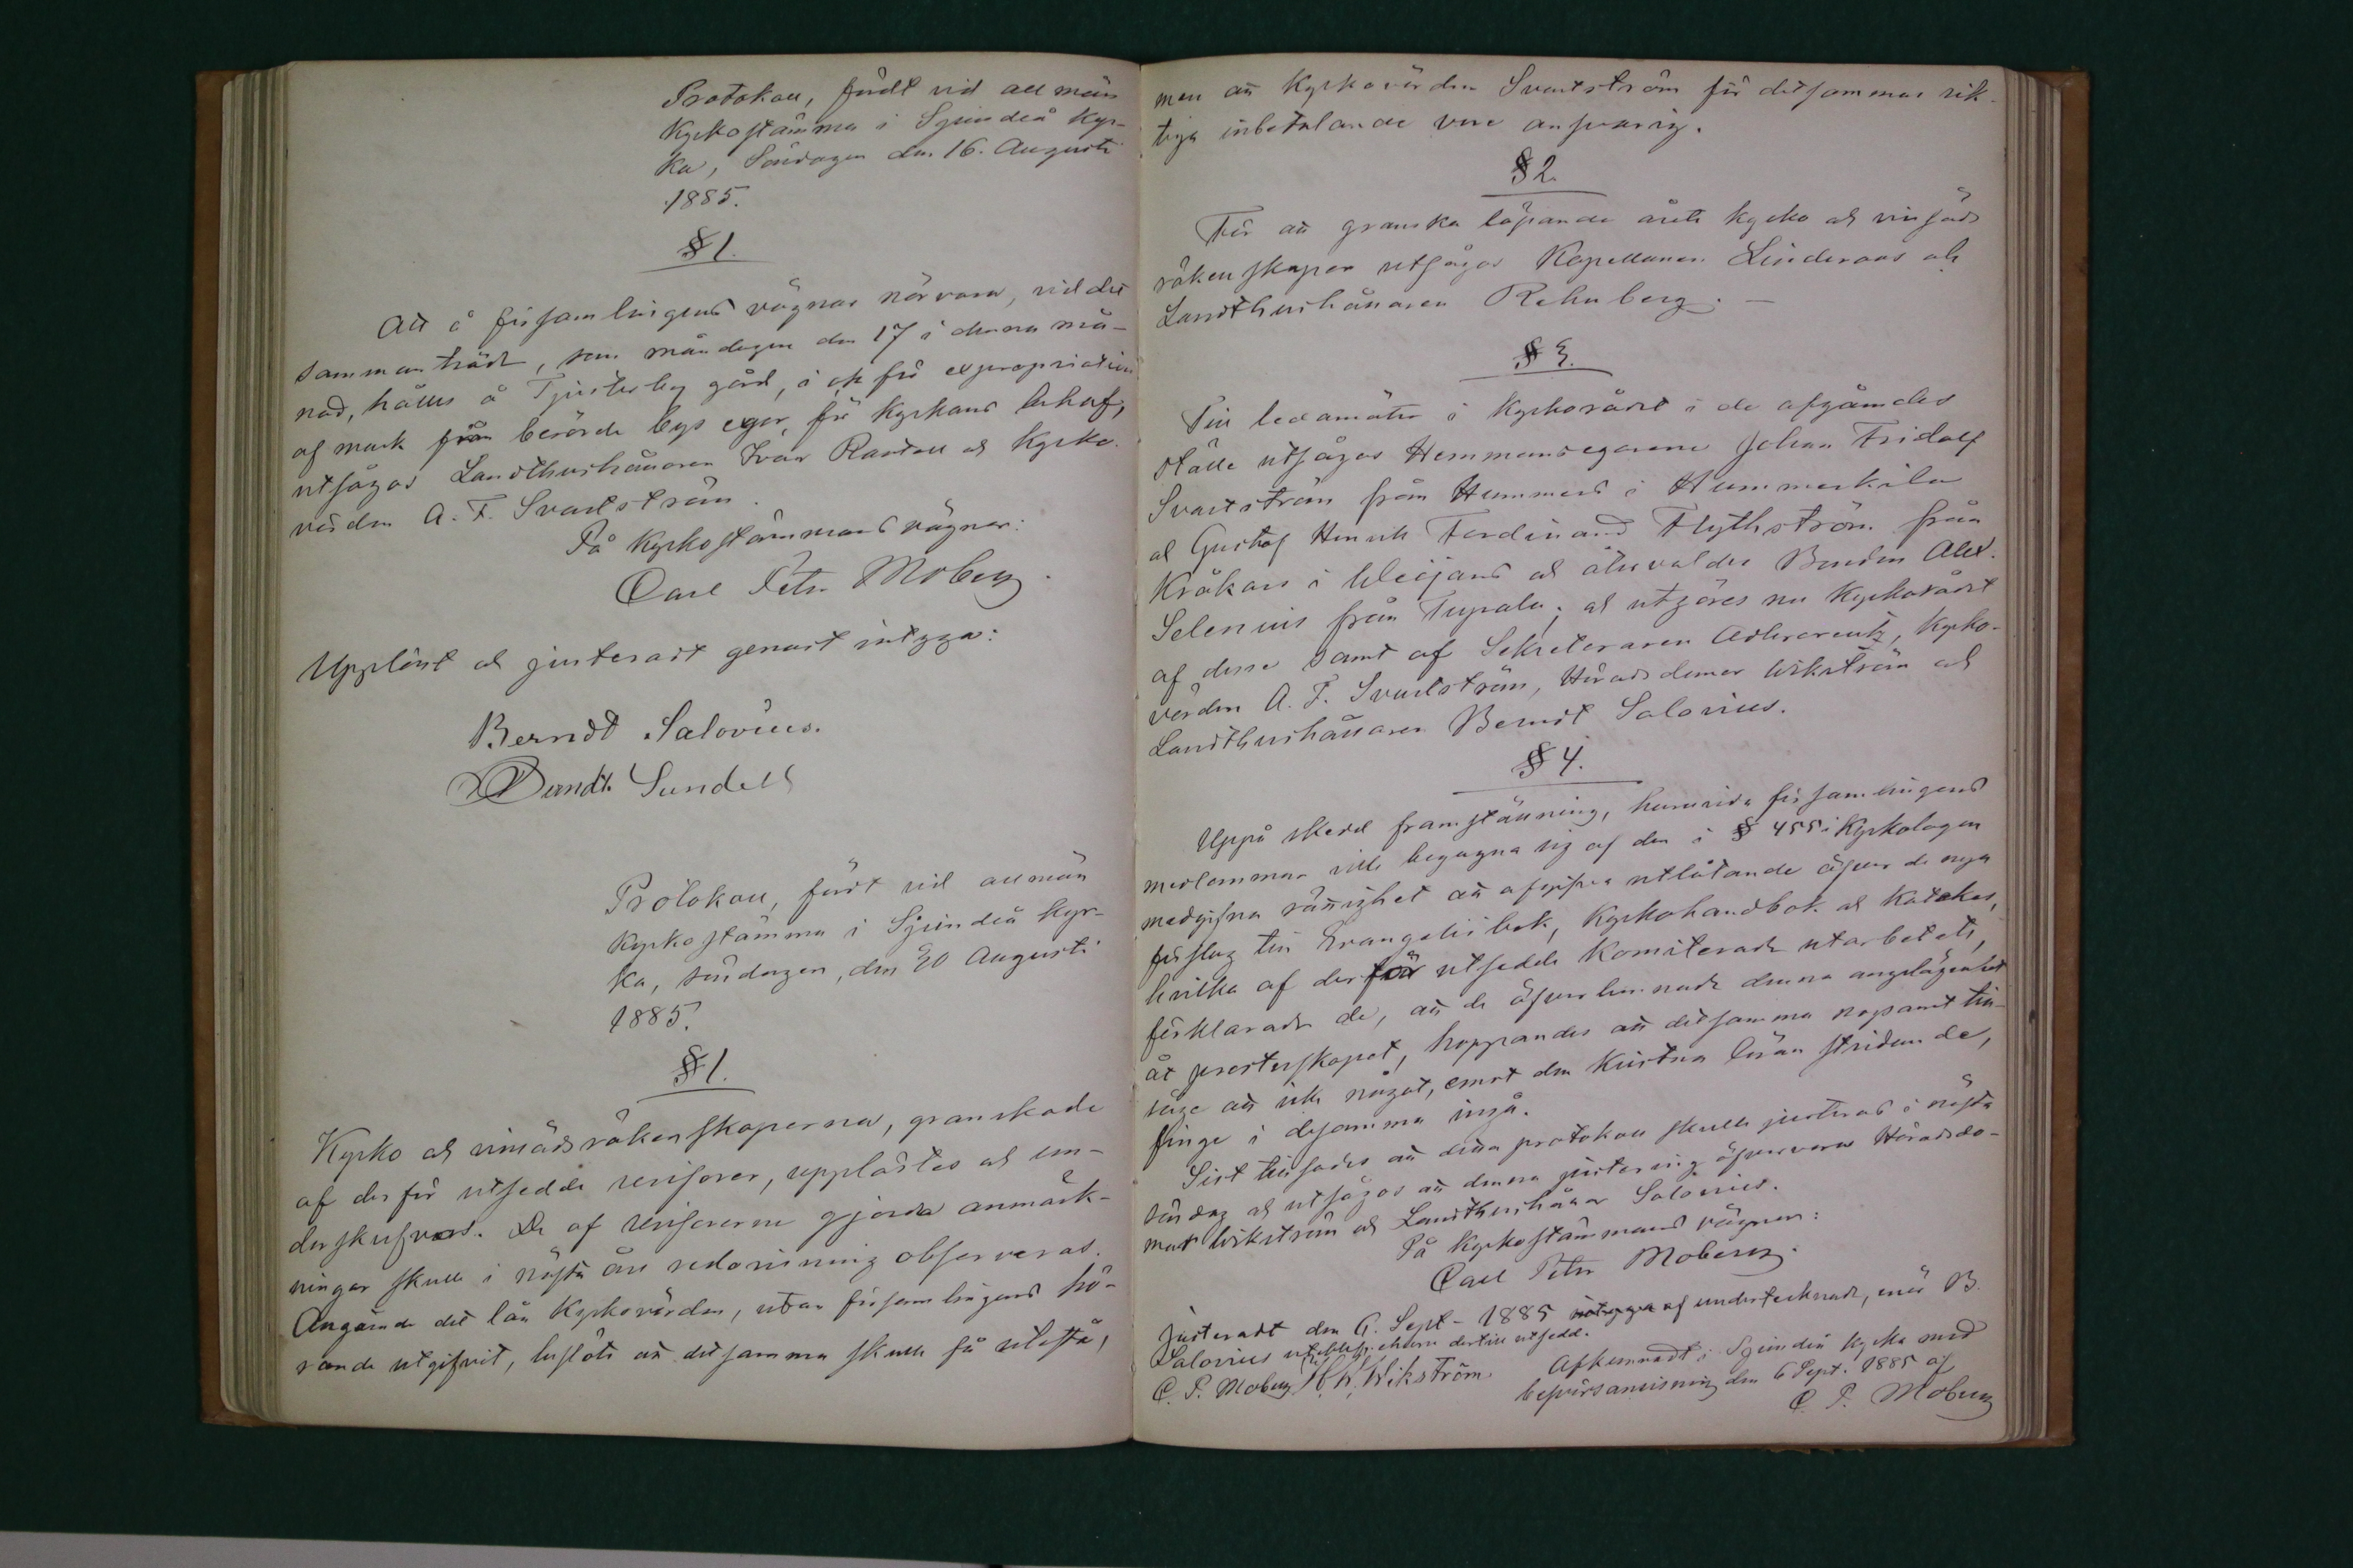 Protokoll, fördt vid allmän
Kyrkostämma i Sjundeå Kyr-
ka, Söndagen den 16. Augusti
1885.
§ 1.
Att å församlingens vägnar närvara, vid det
sammanträde, som måndagen den 17 i denna må-
nad, hålles å Tjusterby gård, i och för expropriation
af mark från berörde bys egor, för Kyrkans behof,
utsågos Landthushållaren Ivar Rantell och Kyrko-
värden A. F. Svartström.
På Kyrkostämmans vägnar:
Carl Petr Moberg.
Uppläst och justeradt genast intyga:
Berndt Salovius.
Berndt Sundell
Protokoll, fördt vid allmän
Kyrkostämma i Sjundeå Kyr-
ka, söndagen, den 30 Augusti
1885.
§ 1.
Kyrko och vinsäds räkenskaperna, granskade
af der för utsedde revisorer, upplästes och un-
derskrefvos. De af revisorerne gjorda anmärk-
ningar skulle i nästa års redovisning observeras.
Angående det lån Kyrkovärden, utan församlingens hö-
rande utgifvit, beslöts att detsamma skulle få utestå,
men att Kyrkovärden Svartström för detsammas rik-
tiga inbetalande vore ansvarig.
§ 2.
För att granska löpande årets kyrko och vinsäds
räkenskaper utsågos Kapellanen Linderoos och
Landthushållaren Rehnberg. —
§ 3.
Till ledamöter i Kyrkorådet i de afgåendes
ställe utsågos Hemmansegarene Johan Fridolf
Svartström från Hummers i Hummerkila
och Gustaf Henrik Ferdinand Flythström från
Kråkars i Weijans och återvaldes Bonden Alex.
Selenius från Tupala; och utgöres nu Kyrkorådet
af desse samt af Sekreteraren Adlercreutz, Kyrko-
värden A. F. Svartström, Häradsdomar Wikström och
Landthushållaren Berndt Salovius.
§ 4.
Uppå skedd framställning, huruvida församlingens
medlemmar ville begagna sig af den i § 455 i Kyrkolagen
medgifna rättighet att afgifva utlåtande öfver de nya
förslag till Evangeliibok, Kyrkohandbok och Katekes,
hvilka af der för utsedde Komiterade utarbetats,
förklarade de, att de öfverlemnade denna angelägenhet
åt presterskapet, hoppandes att detsamma nogsamt till-
såge att icke något, emot den kristna läran stridande,
finge i desamma ingå.
Sist tillsades att detta protokoll skulle justeras i nästa
söndag och utsågos att denna justering öfvervara Häradsdo-
mar Wikström och Landthushållar Salovius.
På Kyrkostämmans vägnar:
Carl Petr Moberg.
Justeradt den 6. Sept. 1885 af undertecknade, enär B.
Salovius uteblef, ehuru dertill utsedd.
C. P. Moberg W. Wikström
Afkunnadt i Sjundeå Kyrka med
besvärsanvisning den 6 Sept. 1885 af
C. P. Moberg